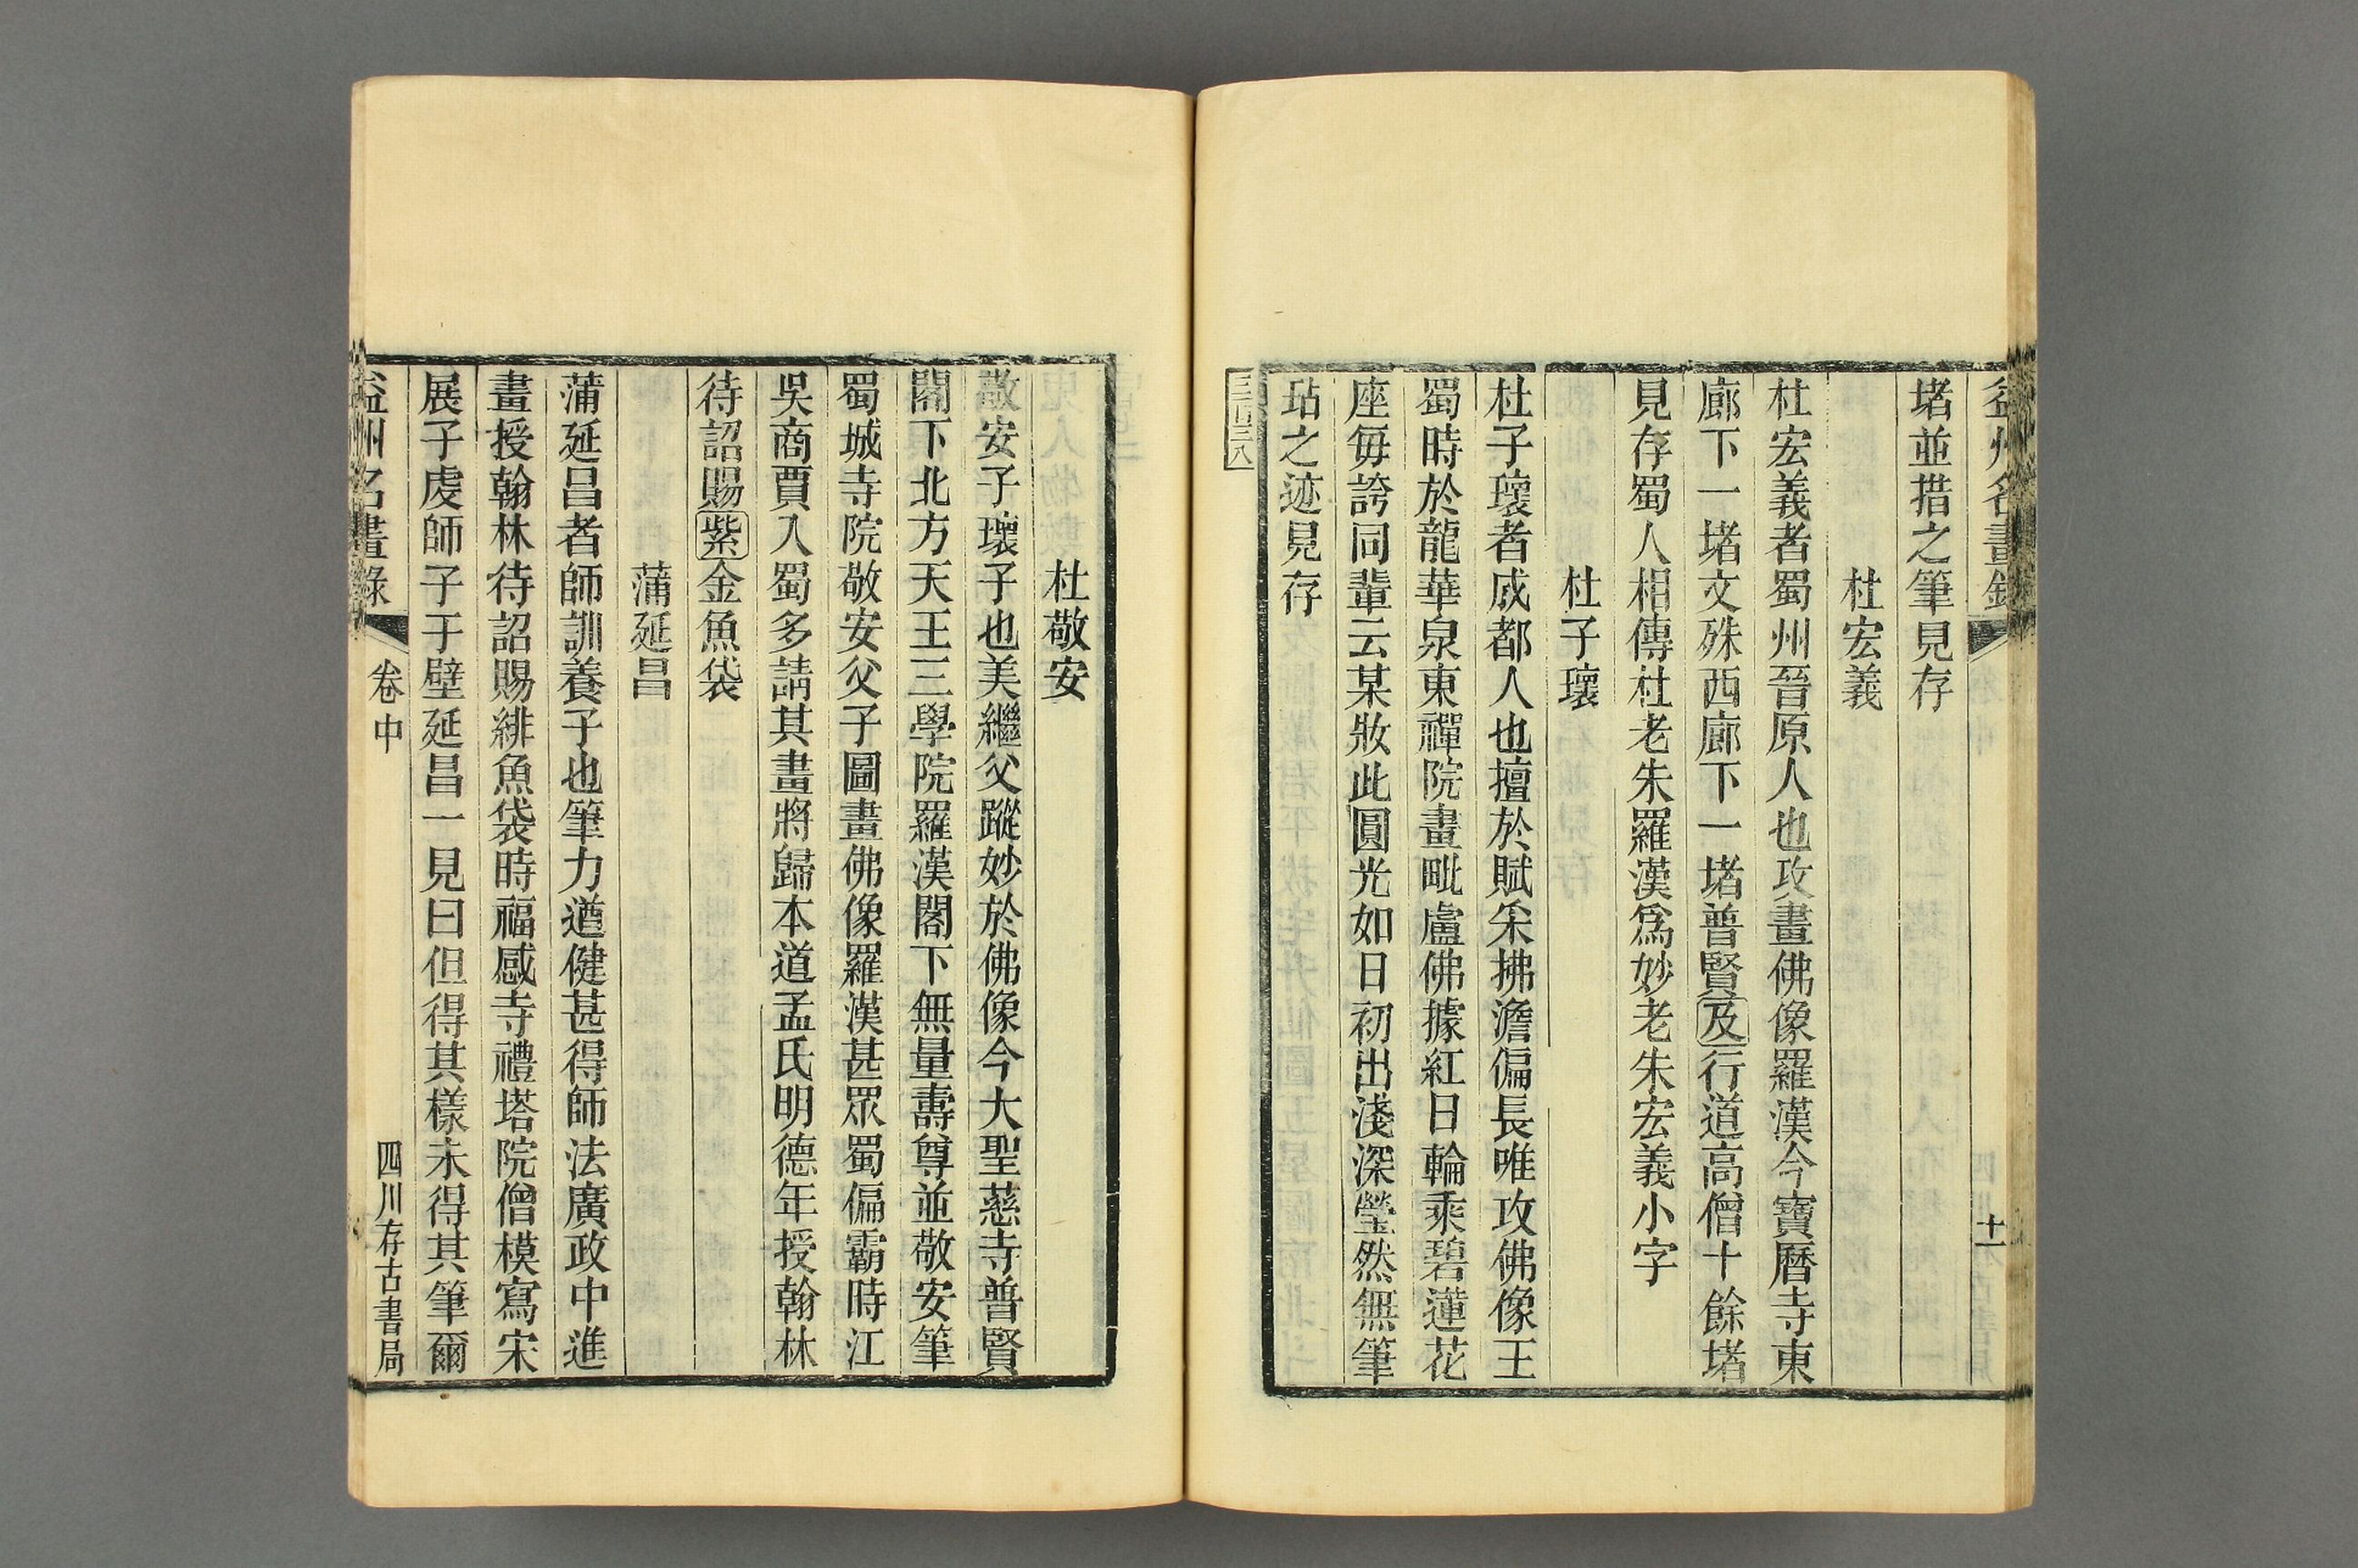 益州名畫錄
十一
堵並措之筆見存
杜宏義
杜宏義者蜀州晉原人也攻畫佛像羅漢今寶曆寺東
廊下一堵文殊西廊下一堵普賢及行道高僧十餘堵
見存蜀人相傳杜老朱羅漢爲妙老朱宏義小字
杜子瓌
杜子瓌者成都人也擅於賦采拂澹偏長唯攻佛像王
蜀時於龍華泉東禪院畫毗盧佛據紅日輪乘碧蓮花
座每誇同輩云某妝此圓光如日初出淺深瑩然無筆
玷之迹見存
杜敬安
敬安子瓌子也美繼父蹤妙於佛像今大聖慈寺普賢
閣下北方天王三學院羅漢閣下無量壽尊並敬安筆
蜀城寺院敬安父子圖畫佛像羅漢甚眾蜀偏霸時江
吳商賈入蜀多請其畫將歸本道孟氏明德年授翰林
待詔賜紫金魚袋
蒲延昌
蒲延昌者師訓養子也筆力遒健甚得師法廣政中進
畫授翰林待詔賜緋魚袋時福感寺禮塔院僧模寫宋
展子虔師子于壁延昌一見曰但得其樣未得其筆爾
益州名畫錄 卷中 四川存古書局